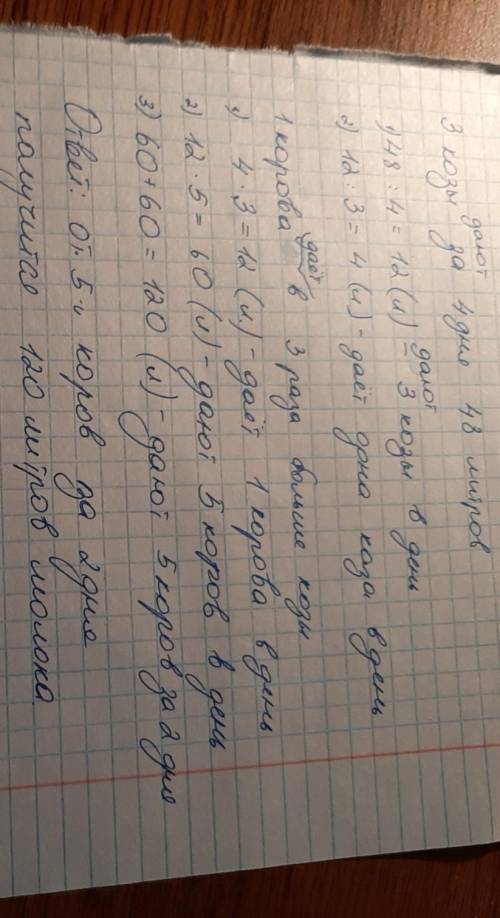 3 козы дают за 4 дня 48 литров
1) 48 : 4 = 12 (л) – дают 3 козы в день
2) 12 : 3 = 4 (л) – даёт одна коза в день
1 корова даёт в 3 раза больше козы
1) 4 · 3 = 12 (л) – даёт 1 корова в день
2) 12 · 5 = 60 (л) – дают 5 коров в день
3) 60 + 60 = 120 (л) – дают 5 коров за 2 дня
Ответ: от 5-и коров за 2 дня
получится 120 литров молока